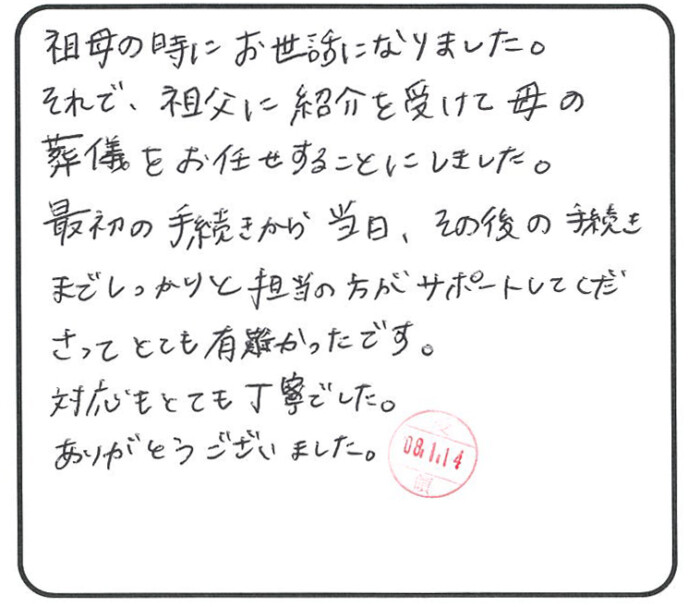 祖母の時にお世話になりました。
それで、祖父に紹介を受けて母の
葬儀をお任せすることにしました。
最初の手続きから当日、その後の手続き
までしっかりと担当の方がサポートしてくだ
さってとても有難かったです。
対応もとても丁寧でした。
ありがとうございました。
08.1.14